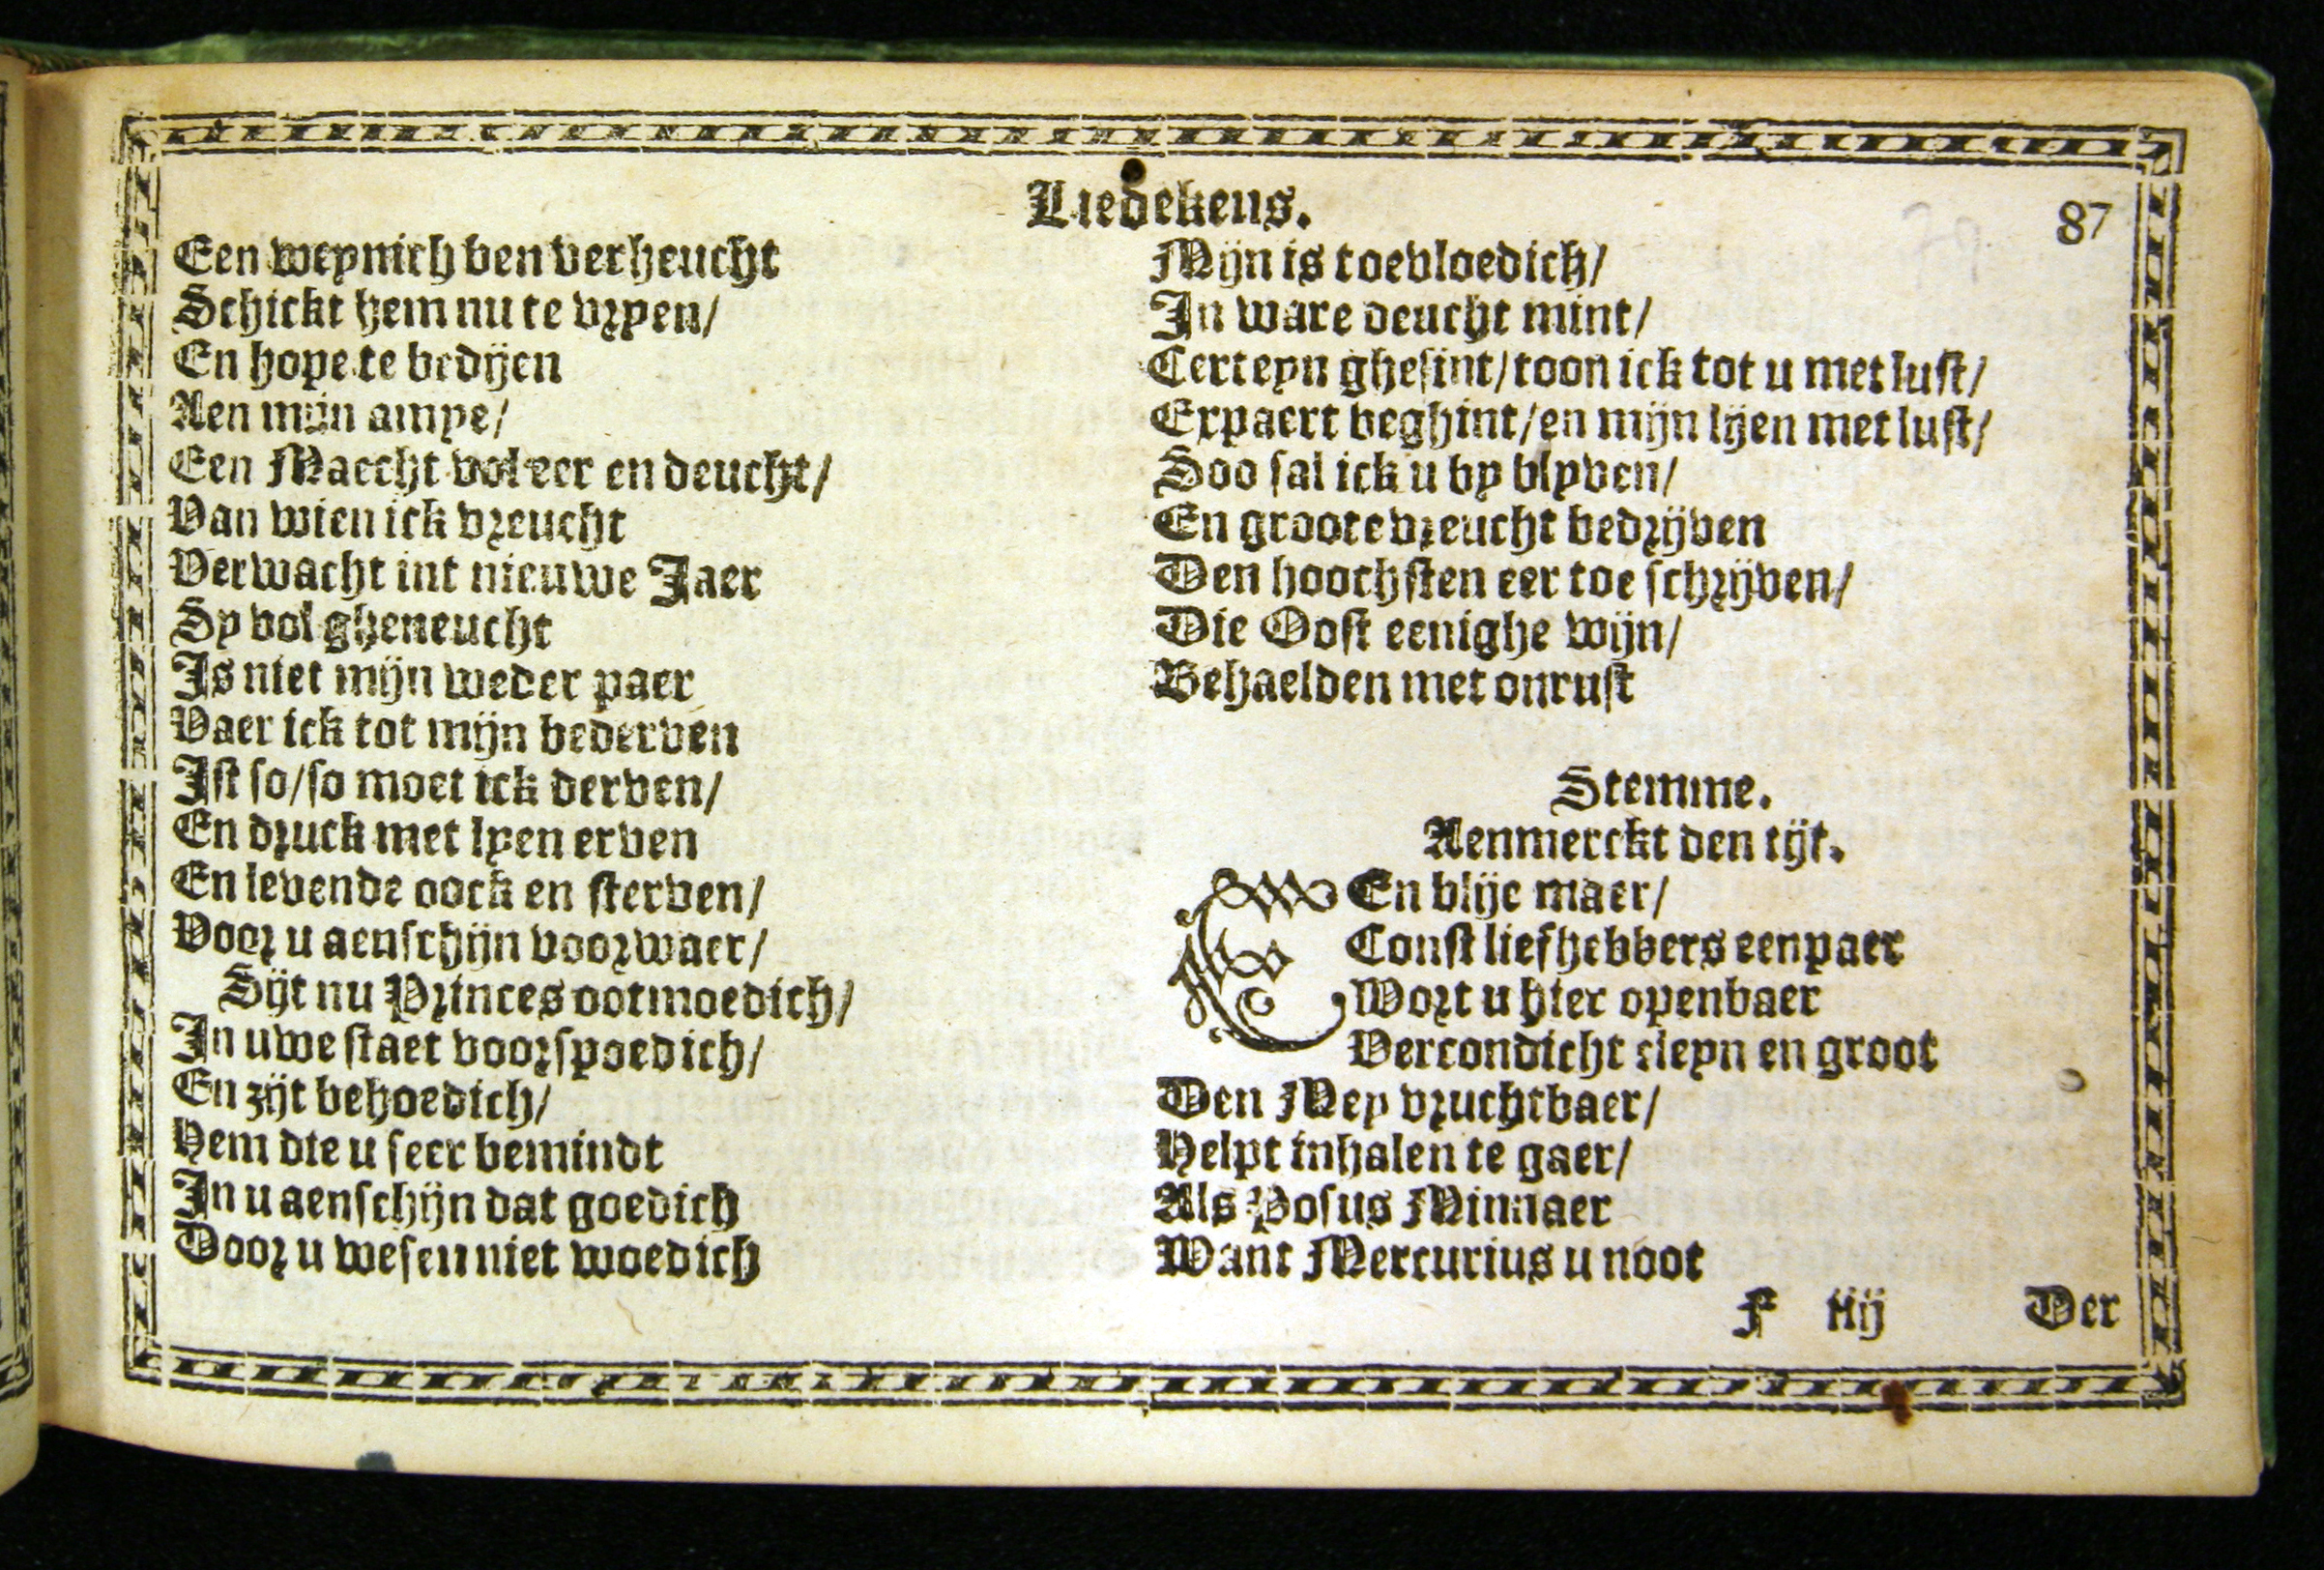 Liedekens.
87
Een weynich ben verheucht
Schickt hem nu te vryen/
En hope te bedijen
Aen mijn amye/
Een Maecht vol eer en deucht/
Van wien ick vreucht
Verwacht int nieuwe Jaer
Sy vol gheneucht
Is niet mijn weder paer
Vaer ick tot mijn bederven
Ist so/so moet ick derven/
En druck met lyen erven
En levende oock en sterven/
Voor u aenschijn voorwaer/
Sijt nu Princes ootmoedich/
In uwe staet voorspoedich/
En zijt behoedich/
Hem die u seer bemindt
In u aenschijn dat goedich
Door u wesen niet woedich
Mijn is toevloedich/
In ware deucht mint/
Certeyn ghesint/toon ick tot u met lust/
Expaert beghint/en mijn lijen met lust/
Soo sal ick u by blyven/
En groote vreucht bedrijven
Den hoochsten eer toe schrijven/
Die Oost eenighe wijn/
Behaelden met onrust
Stemme.
Aenmerckt den tijt.
EEn blije maer/
Const liefhebbers eenpaer
Wort u hier openbaer
Vercondicht cleyn en groot
Den Mey vruchtbaer/
Helpt inhalen te gaer/
Als Posus Minnaer
Want Mercurius u noot
F iiij Der